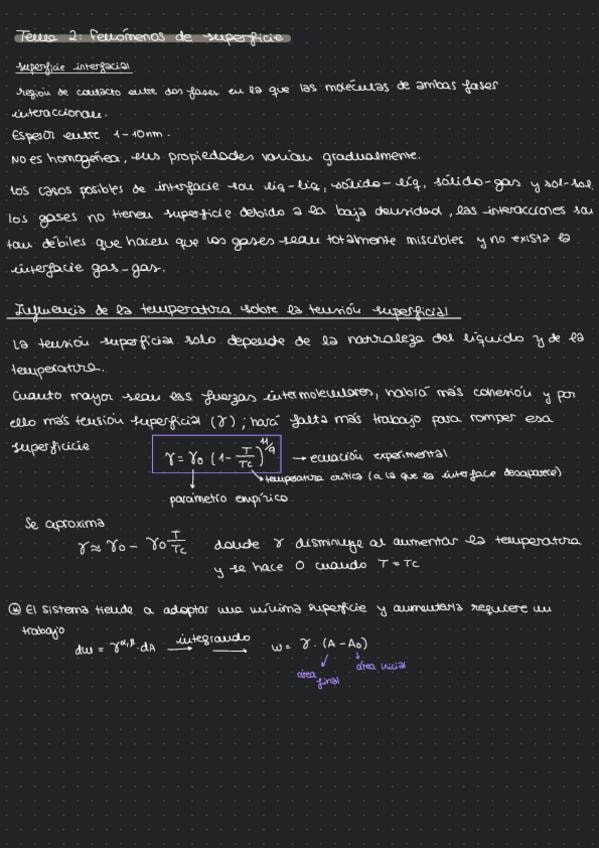 Tema 2: fenómenos de superficie
superficie interfacial
región de contacto entre dos fases en la que las moléculas de ambas fases
interaccionan.
Espesor entre 1-10nm.
No es homogénea, sus propiedades varían gradualmente.
Los casos posibles de interfacie son liq-liq, sólido-líq, sólido-gas y sol-sol.
Los gases no tienen superficie debido a la baja densidad, las interacciones son
tan débiles que hacen que los gases sean totalmente miscibles y no exista la
interfacie gas-gas.
Influencia de la temperatura sobre la tensión superficial
La tensión superficial solo depende de la naturaleza del líquido y de la
temperatura.
Cuanto mayor sean las fuerzas intermoleculares, habrá más cohesión y por
ello más tensión superficial (γ); hará falta más trabajo para romper esa
superficicie
γ = γ₀ (1 - T/Tc)^11/9 → ecuación experimental
→ temperatura crítica (a la que la interface desaparece)
parámetro empírico
Se aproxima
γ ≈ γ₀ - γ₀ T/Tc donde γ disminuye al aumentar la temperatura
y se hace 0 cuando T = Tc
* El sistema tiende a adoptar una mínima superficie y aumentarla requiere un
trabajo
dw = γ^α,β · dA → integrando → w = γ · (A - A₀)
área final
área inicial